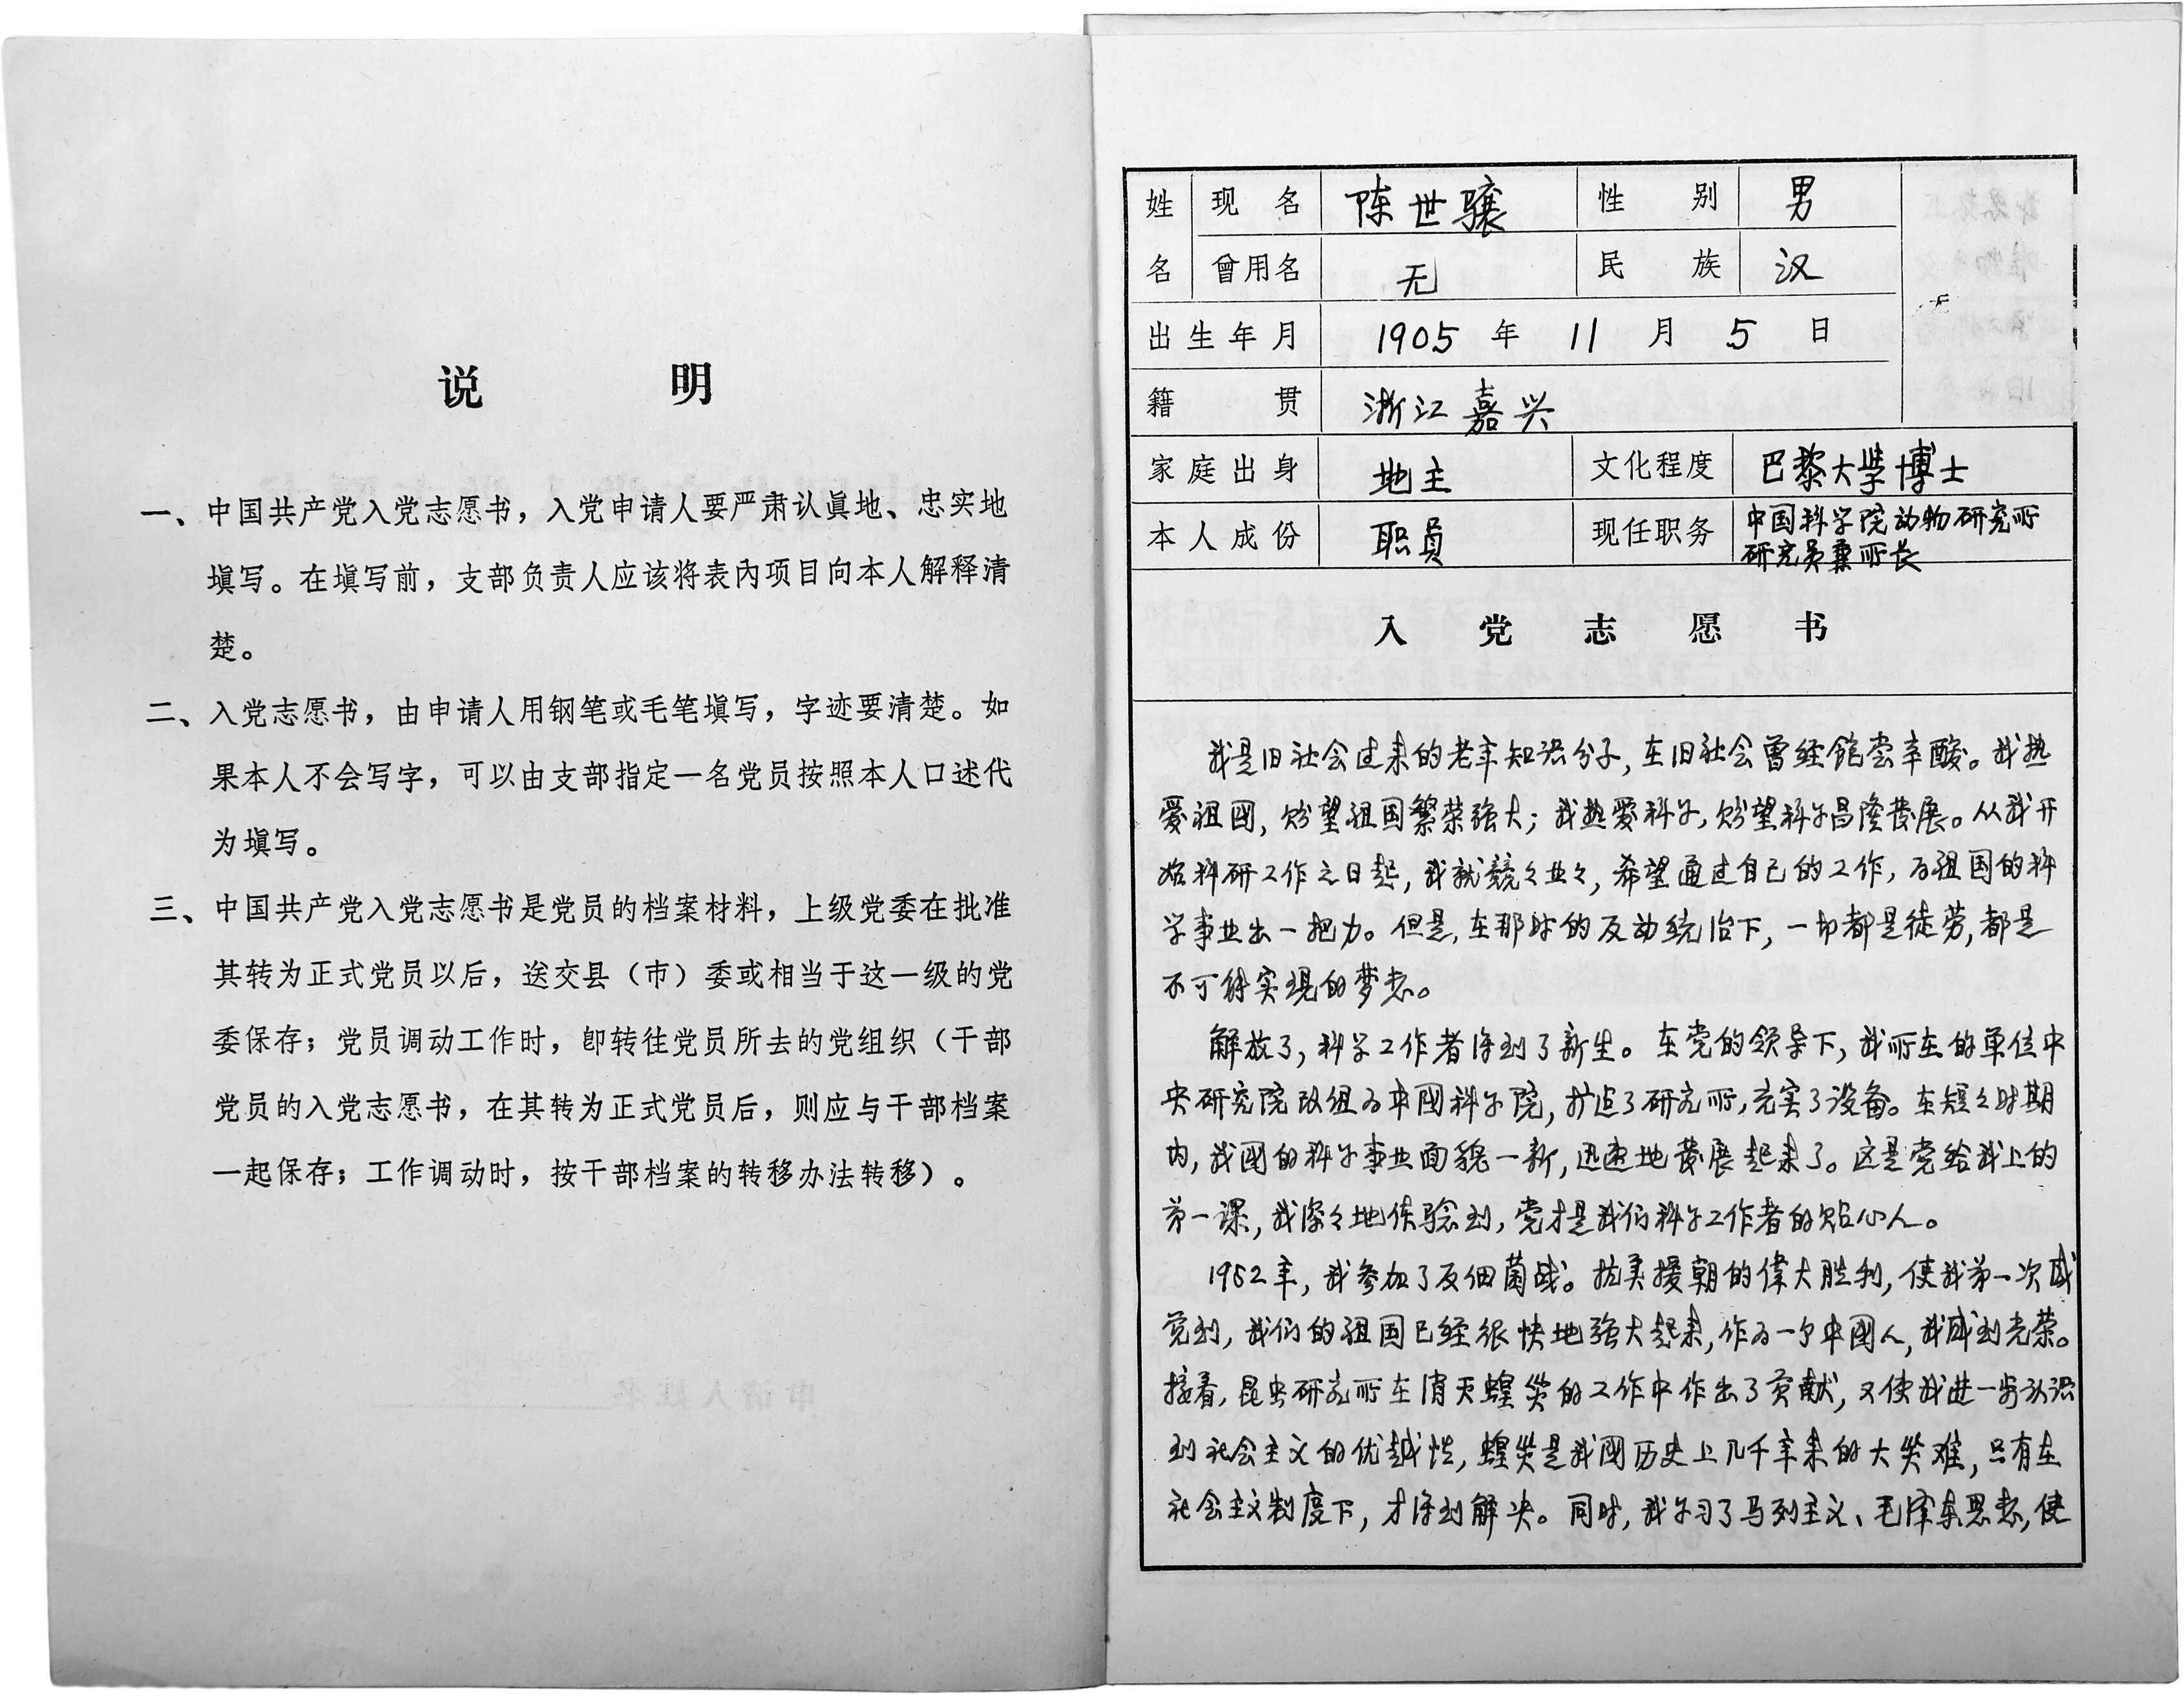 说 明
一、中国共产党入党志愿书，入党申请人要严肃认真地、忠实地
填写。在填写前，支部负责人应该将表内项目向本人解释清
楚。
二、入党志愿书，由申请人用钢笔或毛笔填写，字迹要清楚。如
果本人不会写字，可以由支部指定一名党员按照本人口述代
为填写。
三、中国共产党入党志愿书是党员的档案材料，上级党委在批准
其转为正式党员以后，送交县（市）委或相当于这一级的党
委保存；党员调动工作时，即转往党员所去的党组织（干部
党员的入党志愿书，在其转为正式党员后，则应与干部档案
一起保存；工作调动时，按干部档案的转移办法转移）。
姓名 现名 陈世骧 性别 男
曾用名 无 民族 汉
出生年月 1905 年 11 月 5 日
籍贯 浙江嘉兴
家庭出身 地主 文化程度 巴黎大学博士
本人成份 职员 现任职务 中国科学院动物研究所
研究员兼所长
入党志愿书
我是旧社会过来的老年知识分子，在旧社会曾经饱尝辛酸。我热
爱祖國，盼望祖国繁荣强大；我热爱科学，盼望科学昌隆发展。从我开
始科研工作之日起，我就兢々业々，希望通过自己的工作，为祖国的科
学事业出一把力。但是，在那时的反动统治下，一切都是徒劳，都是
不可能实现的梦想。
解放了，科学工作者得到了新生。在党的领导下，我所在的单位中
央研究院改组为中國科学院，扩迠了研究所，充实了设备。在短々时期
内，我國的科学事业面貌一新，迅速地发展起来了。这是党给我上的
第一课，我深々地体验到，党才是我们科学工作者的贴心人。
1952年，我参加了反细菌战。抗美援朝的偉大胜利，使我第一次感
觉到，我们的祖国已经很快地强大起来，作为一个中國人，我感到光荣。
接着，昆虫研究所在消灭蝗災的工作中作出了贡献，又使我进一步认识
到社会主义的优越性，蝗災是我國历史上几千年来的大災难，只有在
社会主义制度下，才得到解决。同时，我学习了马列主义、毛泽东思想，使